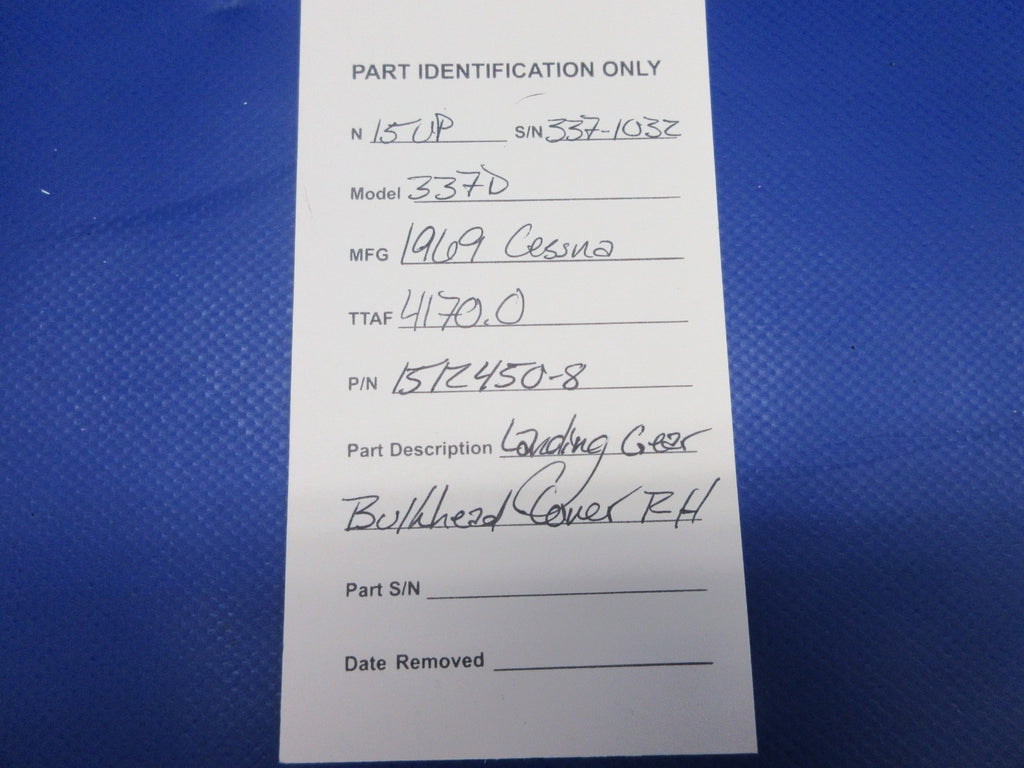 PART IDENTIFICATION ONLY
N 150P S/N 337-1032
Model 337D
MFG 1969 Cessna
TTAF 4170.0
P/N 1512450-8
Part Description Landing Gear
Bulkhead Cover RH
Part S/N
Date Removed